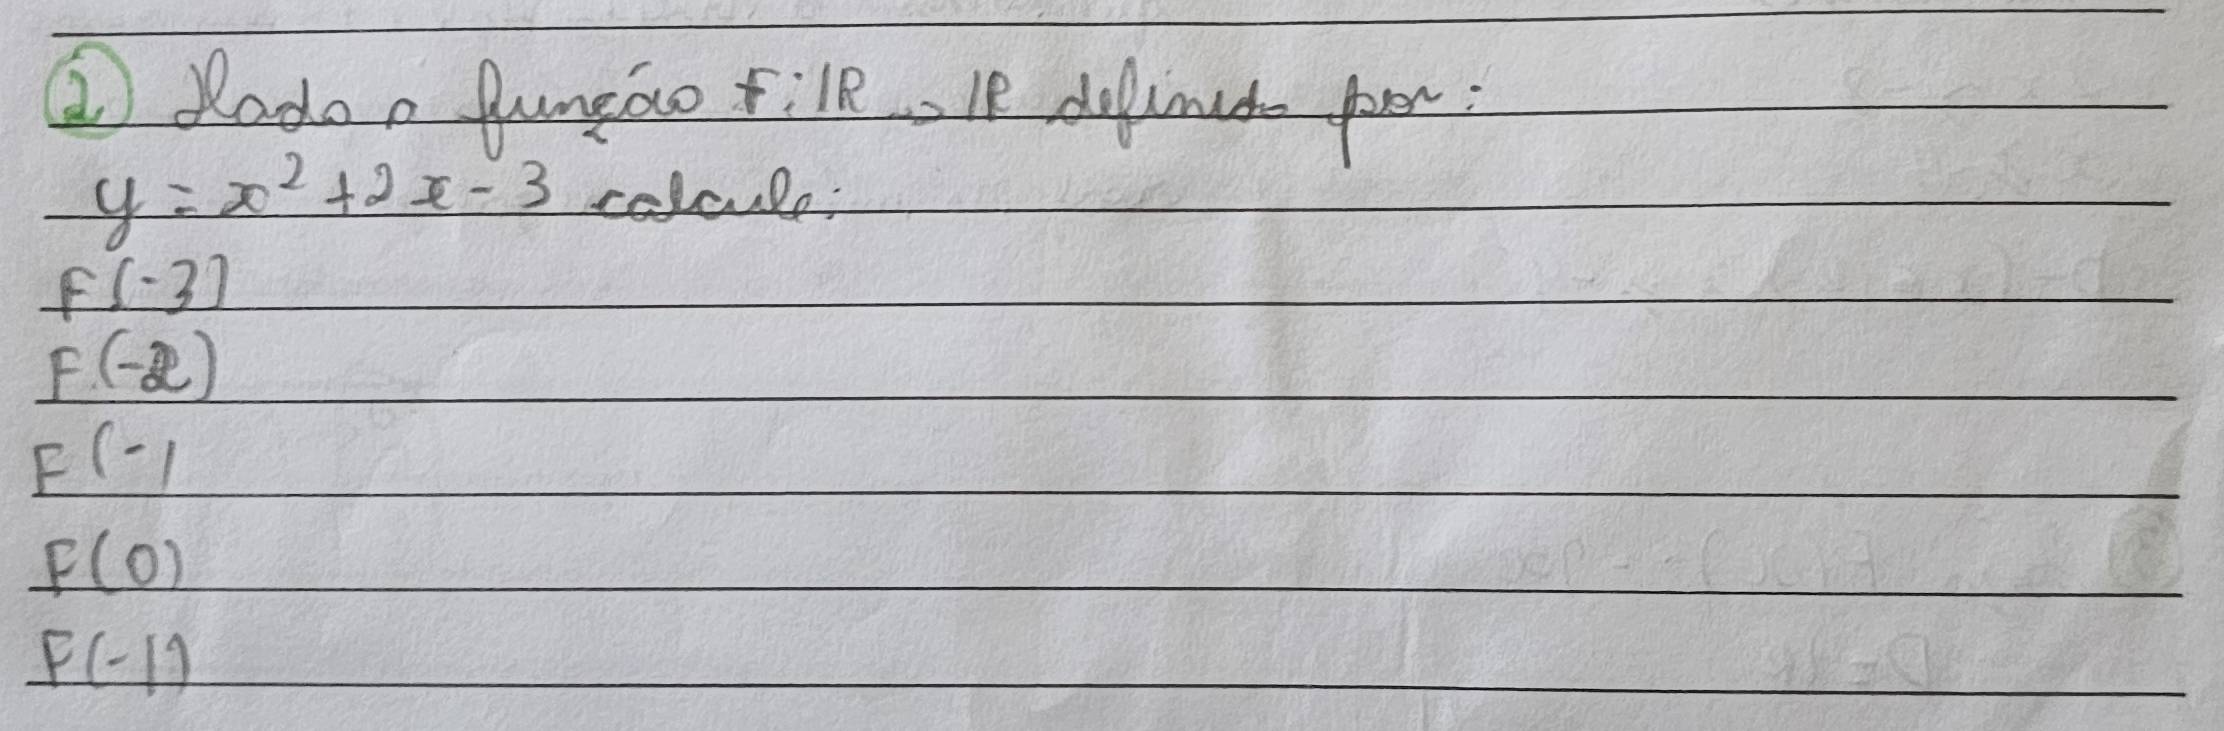 2 Dado a função F: IR → IR definido por:
y = x² + 2x - 3 calcule:
F(-3)
F(-2)
F(-1
F(0)
F(-1)